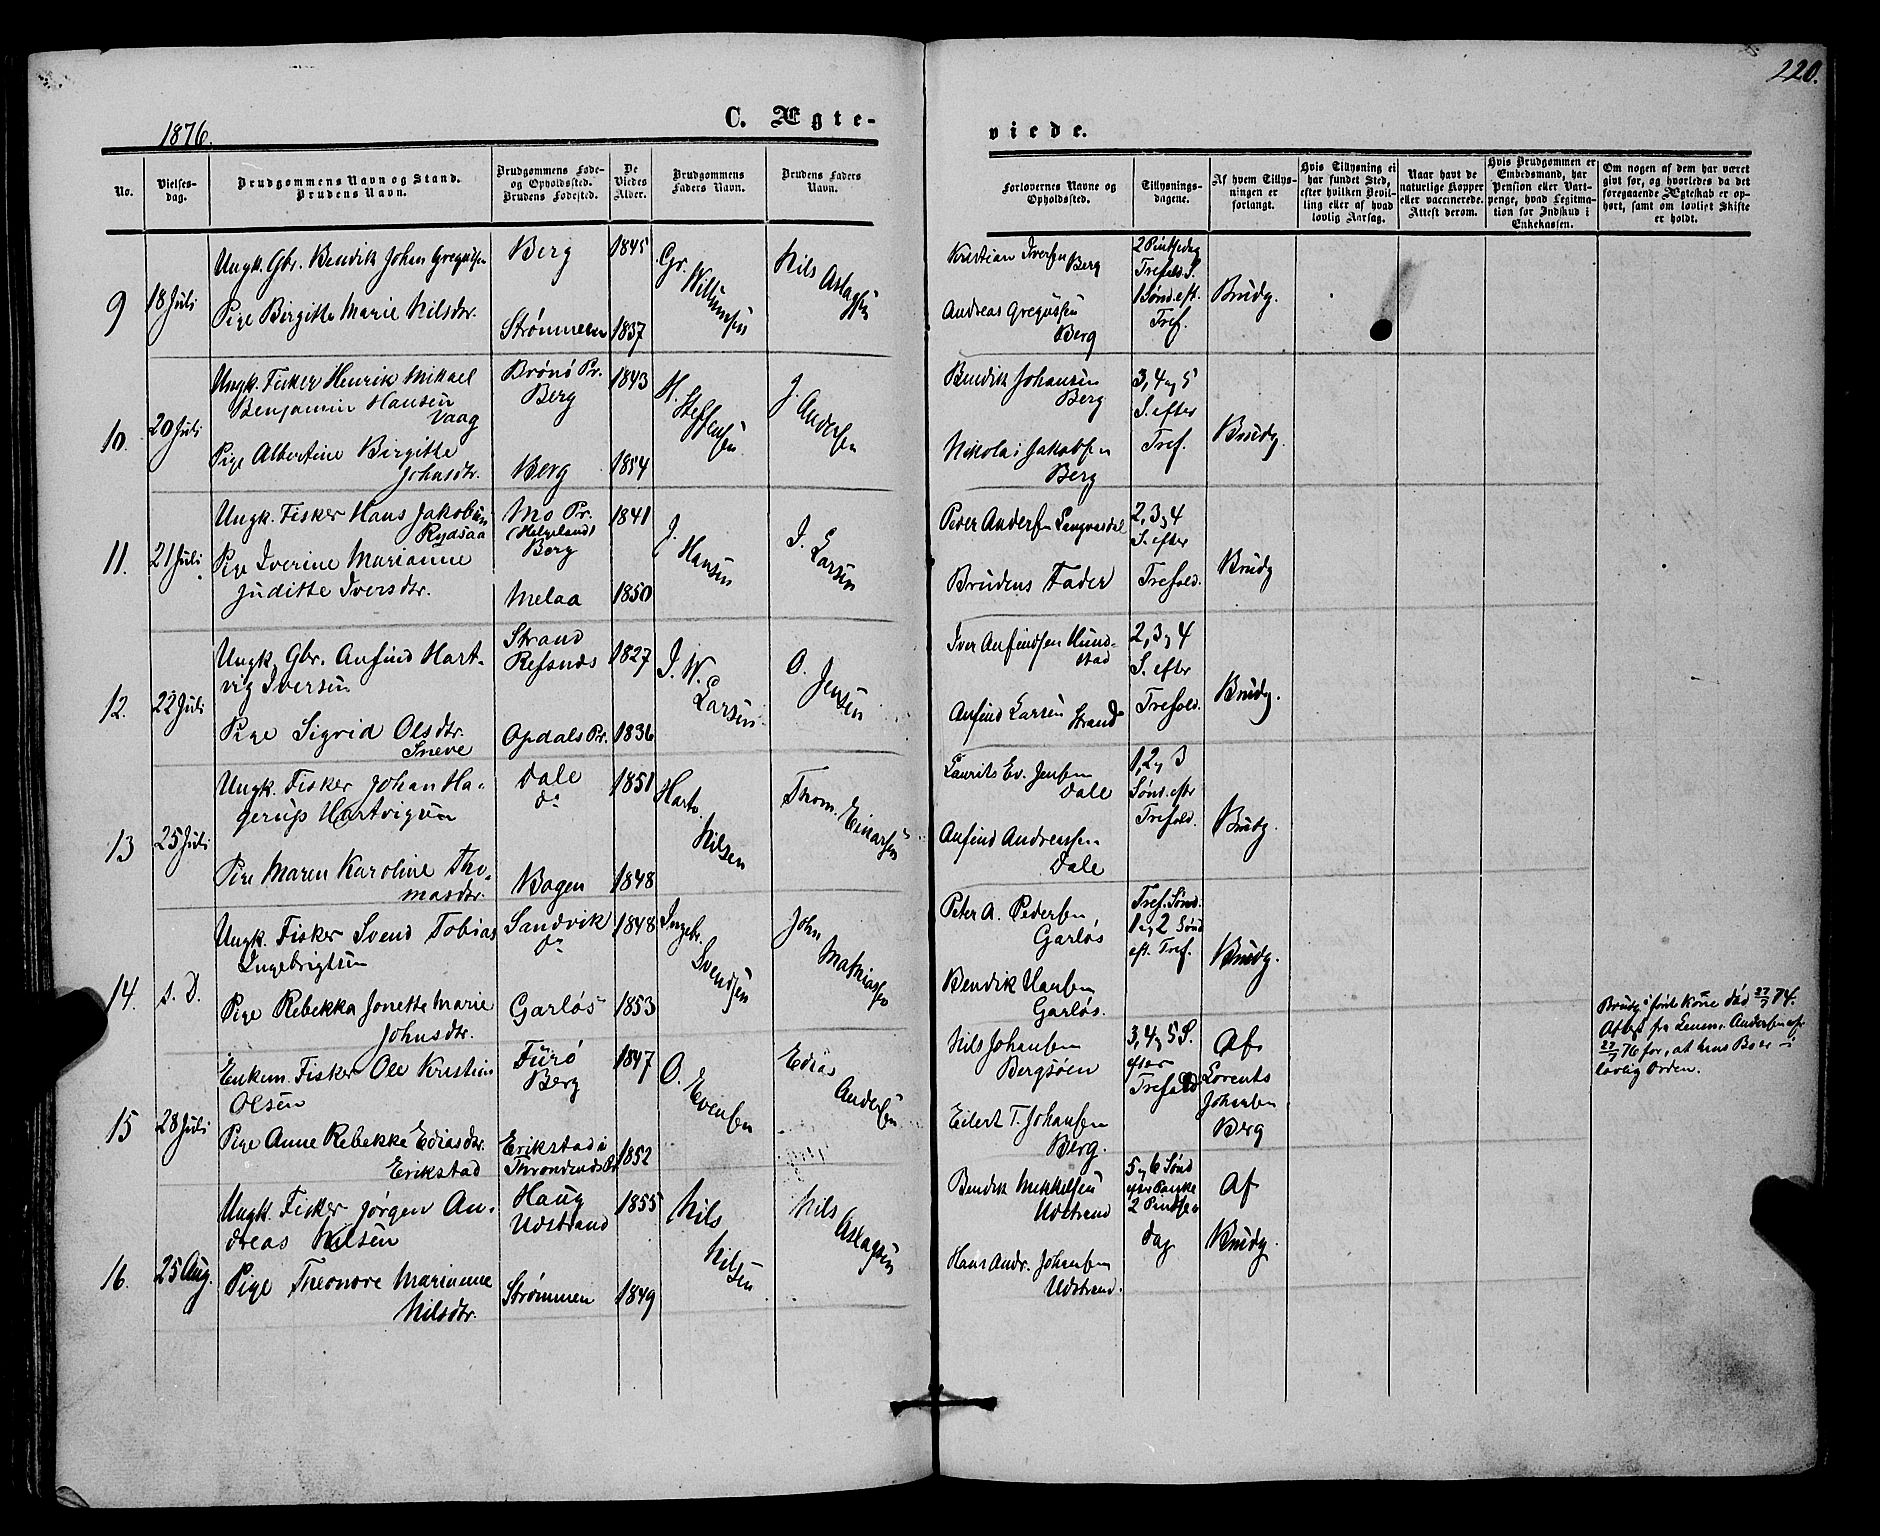 220.
1876.
C. Ægte-
viede.
No.
Vielses-
dag.
Brudgommens Navn og Stand.
Brudens Navn.
Brudgommens Føde-
og Opholdssted.
Brudens Fødested.
De
Viedes
Alder.
Brudgommens
Faders Navn.
Brudens Faders
Navn.
Forlovernes Navne og
Opholdssted.
Tillysnings-
dagene.
Af hvem Tillys-
ningen er
forlangt.
Hvis Tillysning ei
har fundet Sted,
efter hvilken Bevil-
ling eller af hvad
lovlig Aarsag.
Naar havt de
naturlige Kopper
eller vaccinerede.
Attest derom.
Hvis Brudgommen er
Embedsmand, har
Pension eller Vart-
penge, hvad Legitima-
tion for Indskud i
Enkekassen.
Om nogen af dem har været
givt før, og hvorledes da det
foregaaende Ægteskab er op-
hørt, samt om lovligt Skifte
er holdt.
9
18 Juli
Ungk. Gbr. Bendik Johan Gregusen
Pige Birgitte Marie Nilsdtr.
Berg
Strømmen
1845
1837
Gr.
Willumsen
Nils
Aslagsen
Kristian Iversen
Berg
Andreas Gregussen
Berg
2 Pintsedag
Trefds. S.
1 Sønd. eft.
Tref.
Brudg.
10.
20 Juli
Ungk. Fisker Henrik Mikael
Benjamin Hansen
Vaag
Pige Albertine Birgitte
Johnsdtr.
Brønø Pr.
Berg
Berg
1843
1854
H.
Steffensen
J.
Andersen
Bendik Johansen
Berg
Nikolai Jakobsen
Berg
3, 4 og 5
S. efter
Tref.
Brudg.
11.
21 Juli
Ungk. Fisker Hans Jakob
Rydsaa
Pige Iverine Marianne
Juditte Iversdtr.
Mo Pr.
(Helgeland)
Berg
Melaa
1841
1850
J.
Hansen
I.
Larsen
Peder Andersen Langvasdal
Brudens Fader
2, 3 og 4
S. efter
Trefold.
Brudg
12.
22 Juli
Ungk. Gbr. Anfind Hart-
vig Iversen
Pige Sigrid Olsdtr.
Sneve
Strand
Refsnes
Opdals Pr.
1827
1836
I. W.
Larsen
O.
Jensen
Iver Anfindsen Hund-
stad
Anfind Larsen Strand
2, 3 og 4
S. efter
Trefold.
Brudg.
13
25 Juli
Ungk. Fisker Johan Ha-
gerup Hartvigsen
Pige Maren Karoline Tho-
masdtr.
Dale
do
Bogen
1851
1848
Hartv.
Nilsen
Thom.
Einarsen
Laurits Ev. Jensen
Dale
Anfind Andreassen
Dale
1, 2 og 3
Sønd. efter
Trefold.
Brudg.
14.
s. D.
Ungk. Fisker Svend Tobias
Ingebrigtsen
Pige Rebekka Jonette Marie
Johnsdtr.
Sandvik
do
Garløs
1848
1853
Ingebr.
Svendsen
John
Mathiassen
Peter A. Pedersen,
Garløs
Bendik Hansen
Garløs.
Tref. Sønd.
1 og 2 Sønd
eft. Tref.
Brudg.
15
28 Juli
Enkem. Fisker Ole Kristian
Olsen
Pige Anne Rebekke Ediasdtr.
Erikstad
Furø
Berg
Erikstad i
Throndenæs Pr
1847
1852
O.
Evensen
Edias
Andersen
Nils Johansen
Bergsøen
Eilert T. Johansen
Berg.
3, 4 og 5 S.
efter
Trefold
Af
Lorents
Johansen
Berg
Brudg.s første Kone død 27/7 74.
Attest fra Lensm. Andersen af
27/7 76 for, at hans Bo er i
lovlig Orden.
16.
25 Aug.
Ungk. Fisker Jørgen An-
dreas Nilsen
Pige Theonore Marianne
Nilsdtr.
Haug
Udstrand
Strømmen
1855
1849
Nils
Nilsen
Nils
Aslagsen
Bendik Mikkelsen
Udstrand
Hans Andr. Johansen
Udstrand.
5 og 6 Sønd
efter Paaske
2 Pindse-
dag
Af
Brudg.